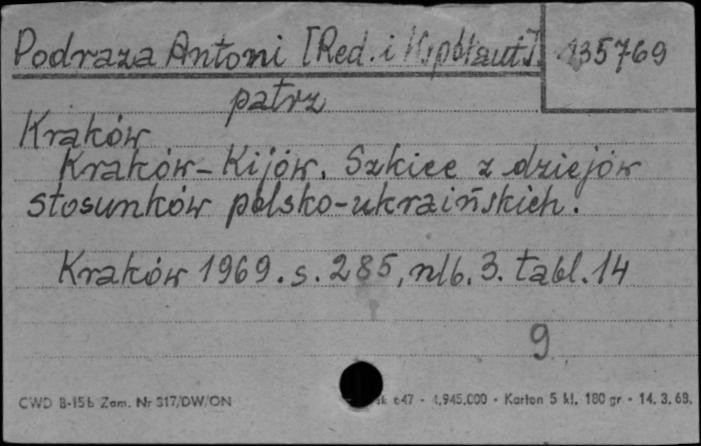 Podraza Antoni [Red. i Współaut.]. 135769
patrz
Kraków
Kraków-Kijów. Szkice z dziejów
stosunków polsko-ukraińskich.
Kraków 1969. s. 285, nlb. 3. tabl. 14
9
CWD B-15b Zam. Nr 317/DW/ON 647 - 4.945.000 - Karton 5 kl. 180 gr - 14. 3. 68.